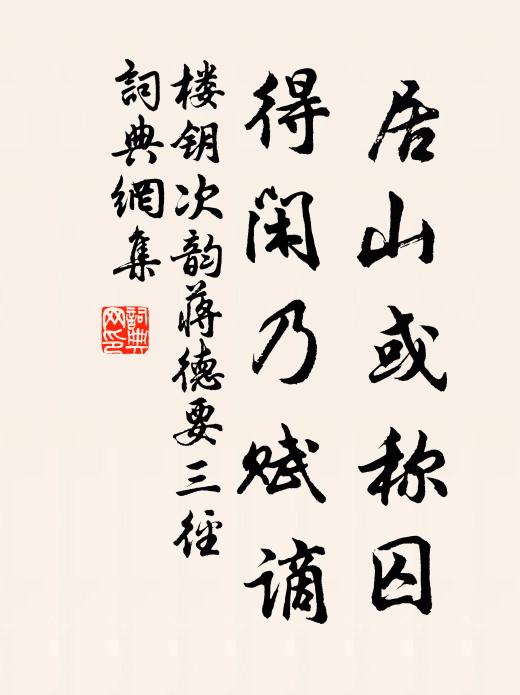 居山或称囚
得闲乃赋谪
楼钥次韵蒋德要三径
詞典網集
詞典网印